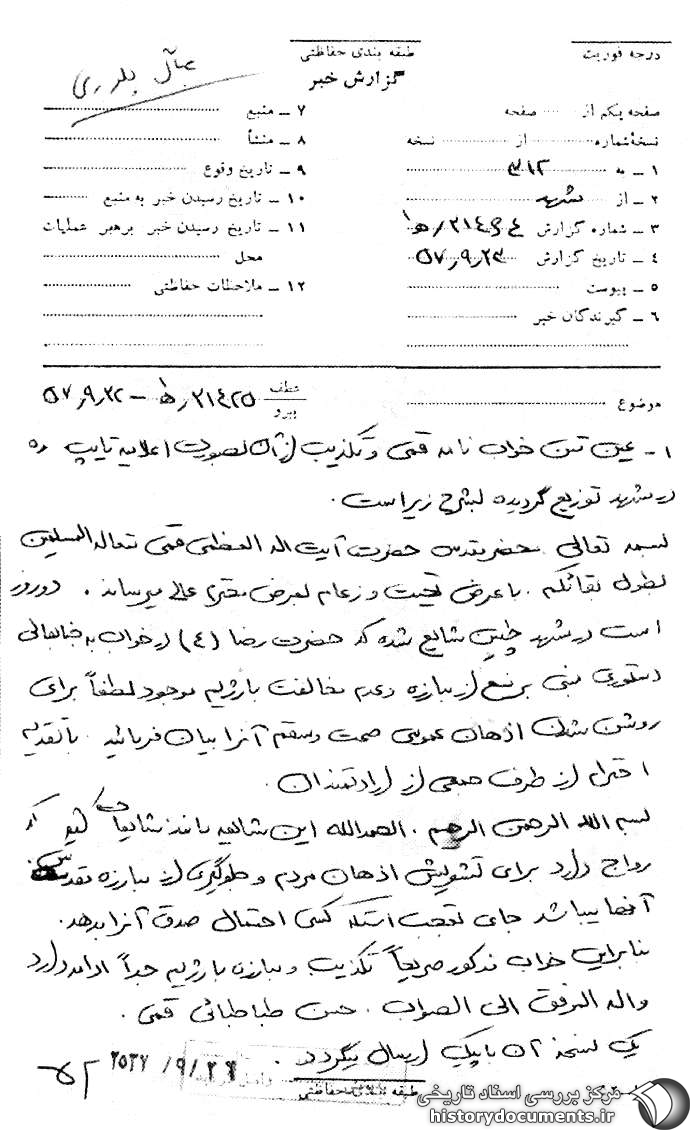 درجه فوریت
طبقه بندی حفاظتی
گزارش خبر
صفحه یکم از ........ صفحه
نسخهٔ شماره ........ از ........ نسخه
۱ ـ به ۳۱۲
۲ ـ از مشهد
۳ ـ شماره گزارش ۲۱۴۶۴/ه‍ ۱
۴ ـ تاریخ گزارش ۵۷٫۹٫۲۳
۵ ـ پیوست
۶ ـ گیرندگان خبر
۷ ـ منبع
۸ ـ منشأ
۹ ـ تاریخ وقوع
۱۰ ـ تاریخ رسیدن خبر به منبع
۱۱ ـ تاریخ رسیدن خبر برهبر عملیات
محل
۱۲ ـ ملاحظات حفاظتی
موضوع
عطف
پیرو
۲۱۴۲۵/ه‍ ۱ - ۵۷٫۹٫۲۲
۱ - عین متن خواب نامه قمی و تکذیب از آن بصورت اعلامیه تایپ شده
در مشهد توزیع گردیده بشرح زیر است .
بسمه تعالی محضر مقدس حضرت آیت اله العظمی قمی متع اله المسلمین
بطول بقائکم . با عرض تحیت و سلام بعرض محترم عالی میرساند . دو روز
است در مشهد چنین شایع شده که حضرت رضا (ع) در خواب به جنابعالی
دستوری مبنی بر منع از مبارزه و عدم مخالفت با رژیم موجود لطفاً برای
روشن شدن اذهان عمومی صحت و سقم آنرا بیان فرمائید . با تقدیم
احترام از طرف جمعی از ارادتمندان .
بسم الله الرحمن الرحیم . الحمدالله این شایعه مانند شایعات دیگر که
رواج دارد برای تشویش اذهان مردم و جلوگیری از مبارزه مقدس
آنها میباشد جای تعجب است که کسی احتمال صدق آنرا بدهد .
بنابراین خواب مذکور صریحاً تکذیب و مبارزه با رژیم جداً ادامه دارد
واله الموفق الی الصواب . حسن طباطبائی قمی .
یک نسخه آن با پیک ارسال میگردد .
۲۵۳۷/۹/۲۶
طبقه بندی حفاظتی
مرکز بررسی اسناد تاریخی
historydocuments.ir